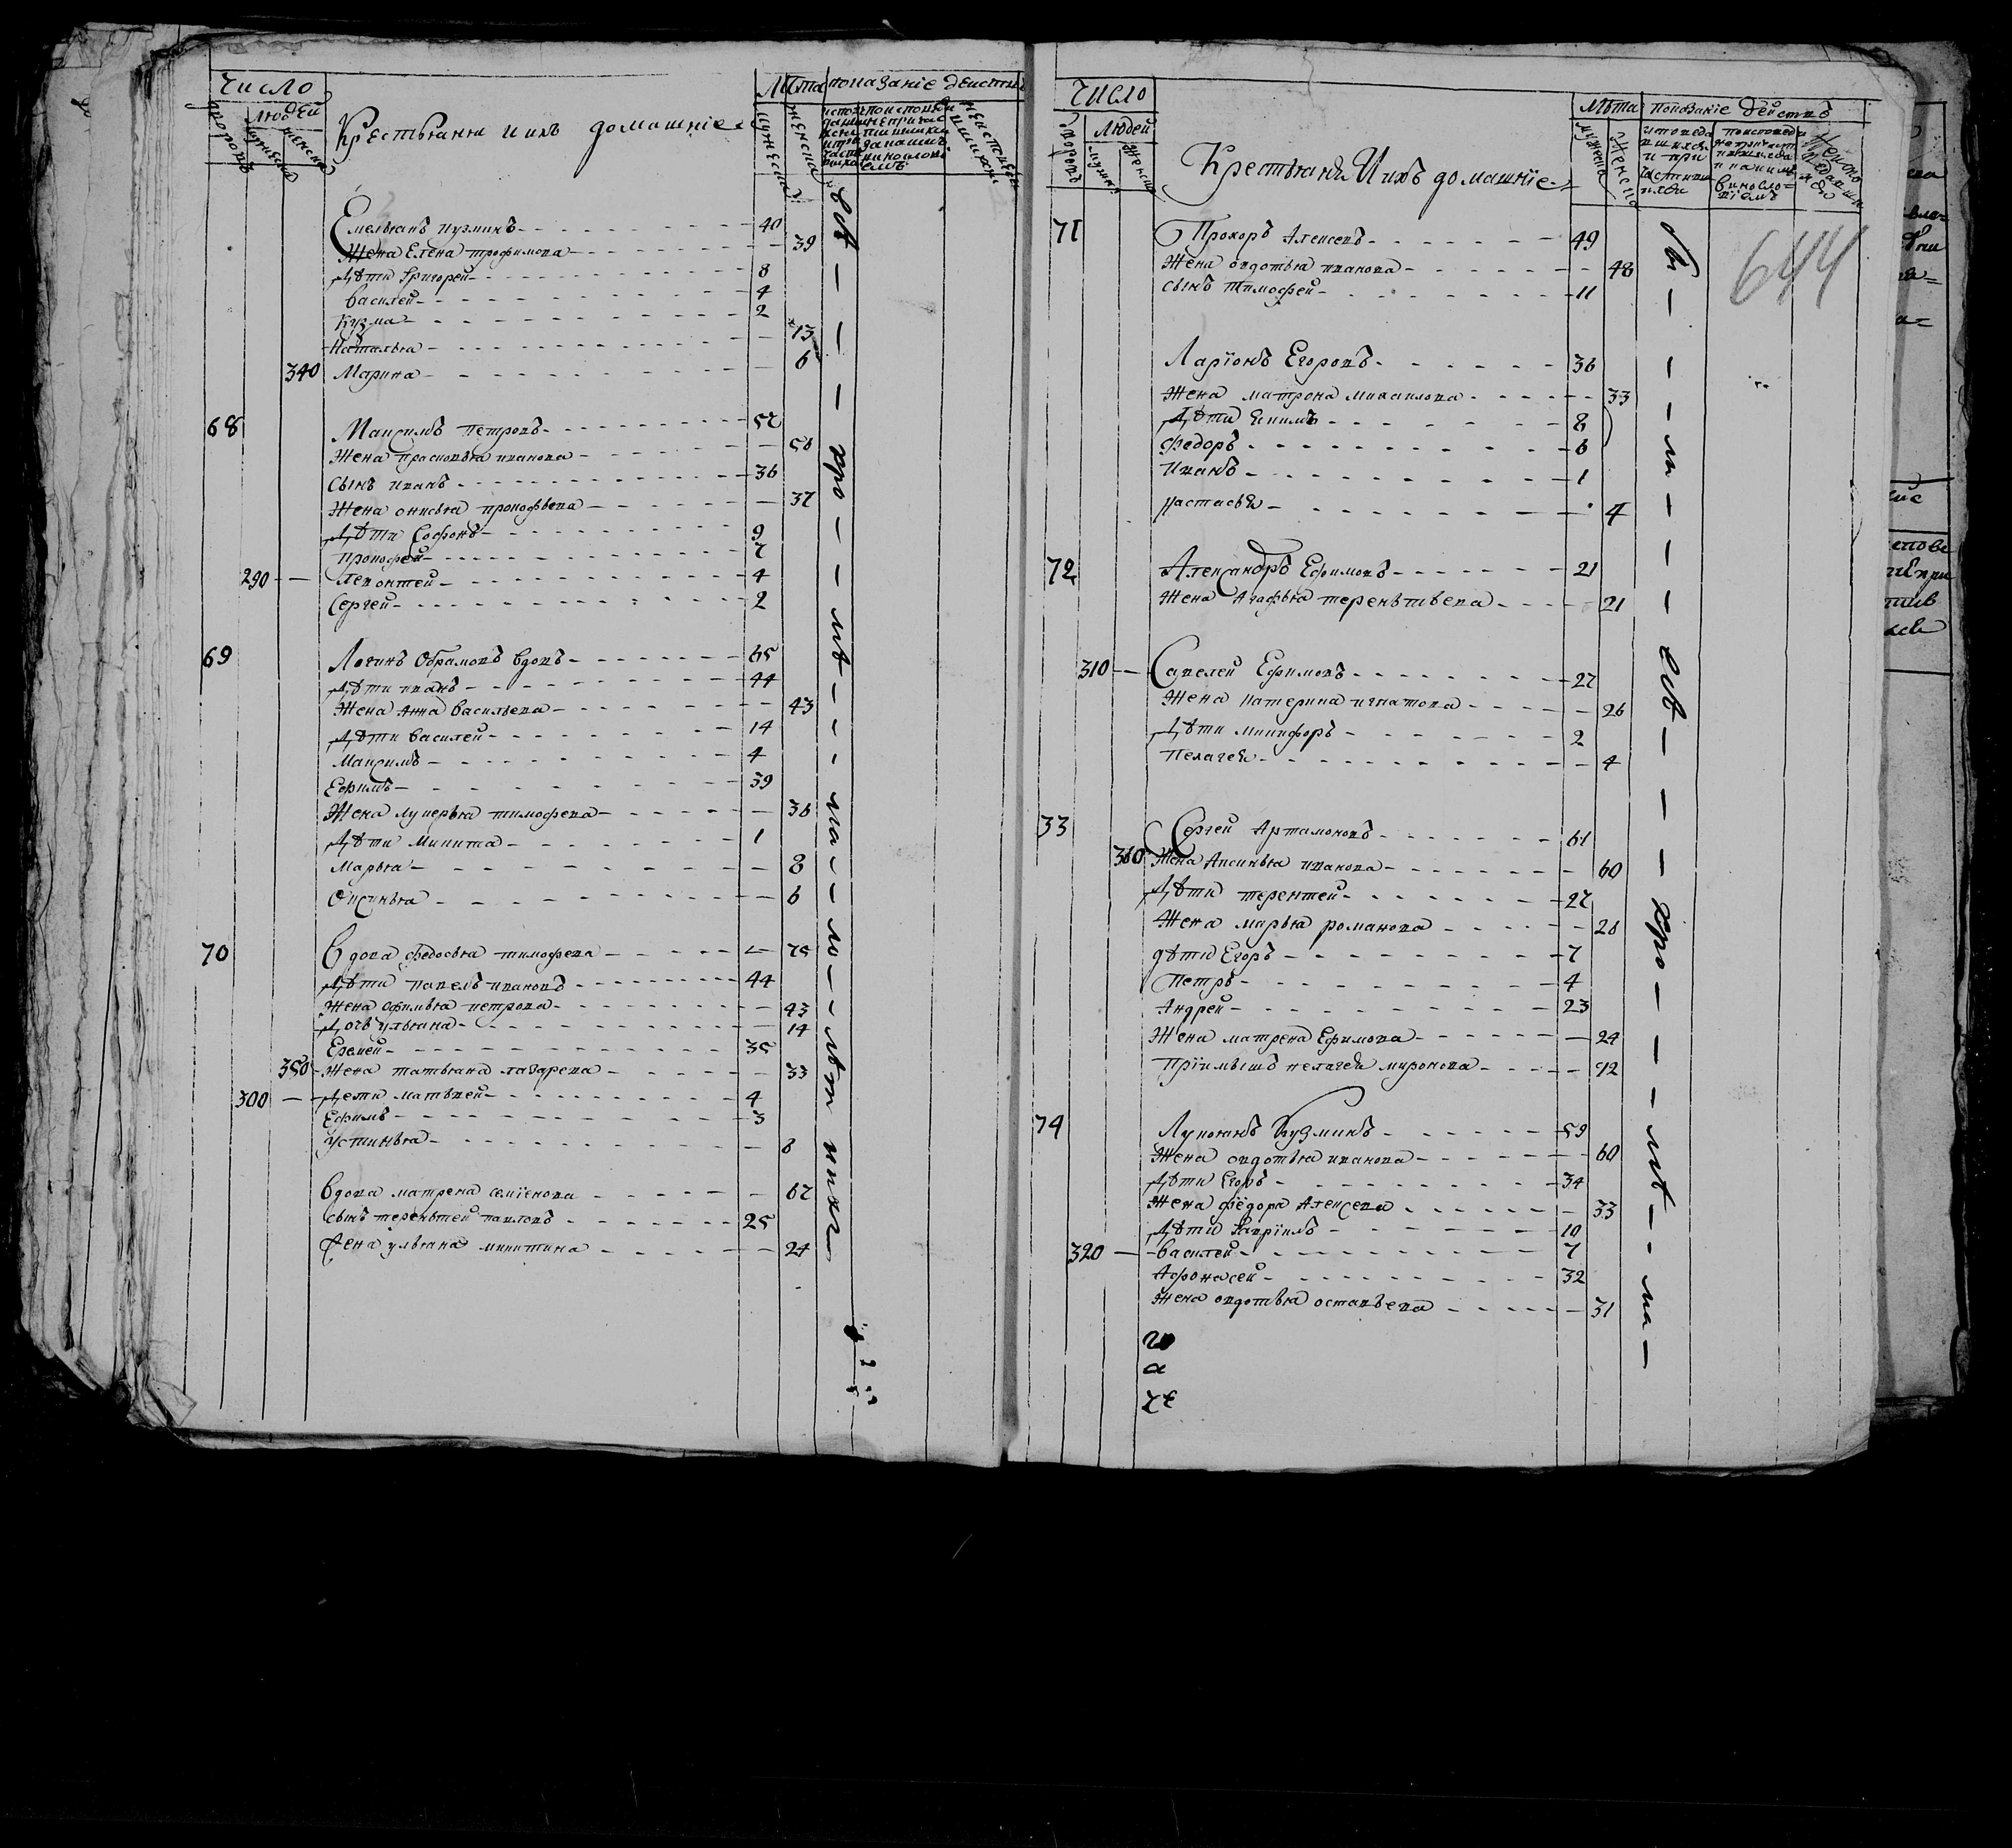 Число
Людей
дворовъ
мужеска
женска
Крестьяня и ихъ домашнїе
Лѣта
мужеска
женска
показанїе действъ
Емельянъ кузминъ 40
Жена Елена трофимова 39
Дѣти Григорей 8
Василей 4
Кузма 2
Наталья 13
340 Марина 6
68 Максимъ петровъ 57
Жена прасковья иванова 56
Сынъ иванъ 36
Жена онисья прокофьева 37
Дѣти Софонъ 9
Прокофей 7
290 Левонтей 4
Сергей 2
69 Логинъ Обрамовъ вдовъ 65
Дѣти иванъ 44
Жена Анна васильева 43
Дѣти василей 14
Максимъ 4
Ефимъ 39
Жена лукерья тимофева 36
Дѣти Микита 1
Марья 8
Оксинья 6
70 Вдова федосья тимофева 75
Дѣти павелъ ивановъ 44
Жена Офимья петрова 43
Дочь ульяна 14
Еремей 35
350 Жена татьяна лазарева 33
300 Дети матьвей 4
Ефимъ 3
Устинья 8
Вдова матрена семїенова 67
сынъ терентей павловъ 25
Жена ульяна микитина 24
Число
Людей
дворовъ
мужеска
женска
Крестьяня И ихъ домашнїе
Лѣта
мужеска
женска
показанїе действъ
644
71 Прохоръ Алексевъ 49
Жена овдотья иванова 48
сынъ тимофей 11
Ларїонъ Егоровъ 36
Жена матрона михаилова 33
Дѣти Якимъ 8
Федоръ 6
Иванъ 1
Настасья 4
72 Александръ Ефимовъ 21
Жена Агафья терентьева 21
310 Савелей Ефимовъ 27
Жена катерина игнатова 26
Дѣти микифоръ 2
Пелагея 4
33 Сергей Артамоновъ 61
360 Жена Аксинья иванова 60
Дѣти терентей 27
Жена марья романова 28
дѣти Егоръ 7
Петръ 4
Андрей 23
Жена матрена Ефимова 24
Прїимышъ пелагея миронова 92
74 Лукоянъ Кузминъ 59
Жена овдотья иванова 60
Дѣти Егоръ 34
Жена фїедора Алексева 33
Дѣти Гаврїилъ 10
320 Василей 7
Афонасей 32
Жена овдотья остапьева 31